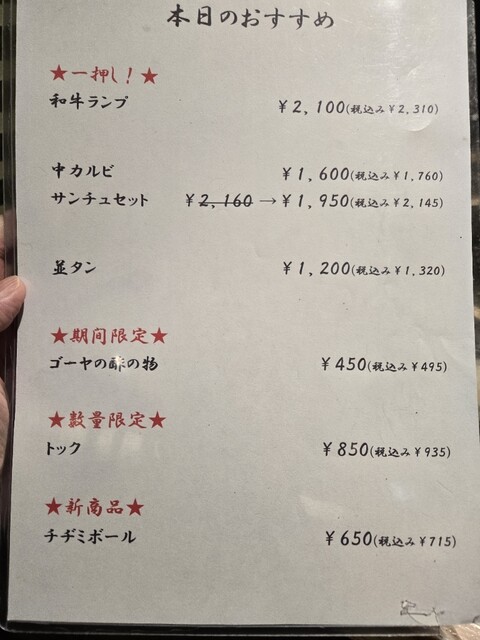 本日のおすすめ
★一押し！★
和牛ランプ ¥2,100(税込み¥2,310)
中カルビ ¥1,600(税込み¥1,760)
サンチュセット ¥2,160→¥1,950(税込み¥2,145)
並タン ¥1,200(税込み¥1,320)
★期間限定★
ゴーヤの酢の物 ¥450(税込み¥495)
★数量限定★
トック ¥850(税込み¥935)
★新商品★
チヂミボール ¥650(税込み¥715)